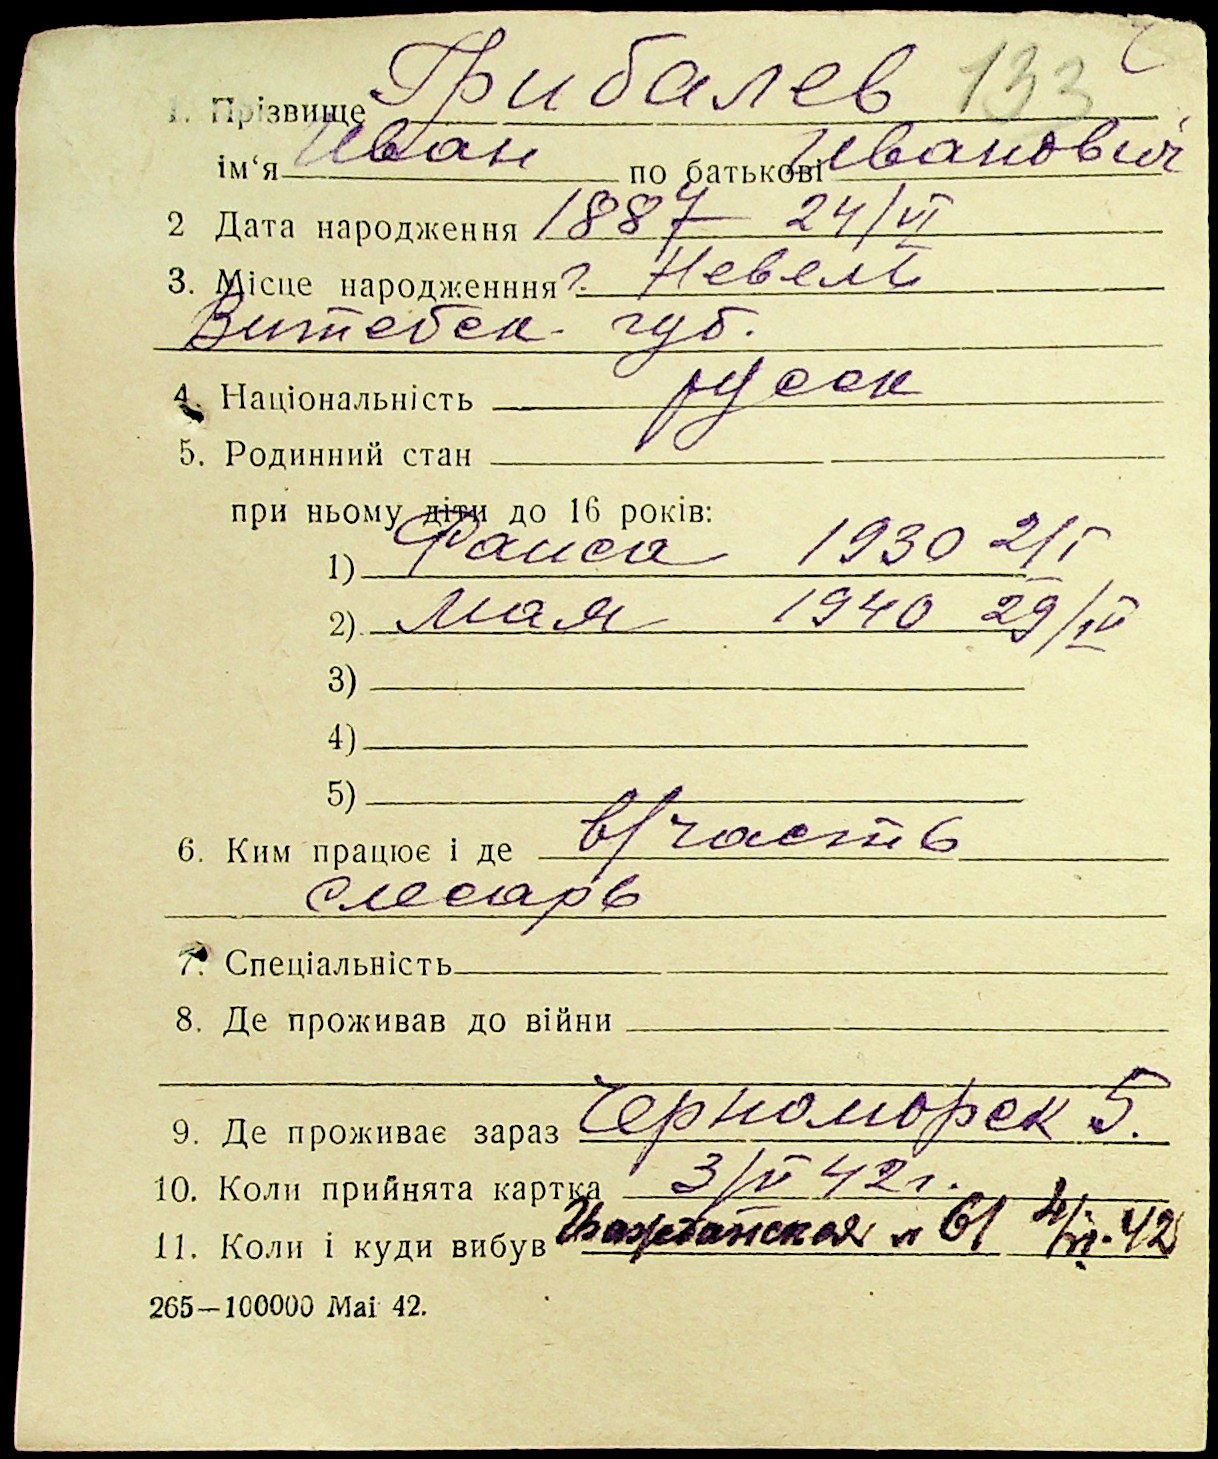 1. Прізвище Грибалев 133
ім‘я Иван по батькові Иванович
2 Дата народження 1887 24/VI
3. Місце народженння г. Невель
Витебск. губ.
4. Національність русск
5. Родинний стан
при ньому діти до 16 років:
1) Раиса 1930 2/I
2) Мая 1940 29/IV
3)
4)
5)
6. Ким працює і де в/часть
слесарь
7. Спеціальність
8. Де проживав до війни
9. Де проживає зараз Черноморск 5.
10. Коли прийнята картка 3/VI 42 г.
11. Коли і куди вибув 61 42
265—100000 Mai 42.